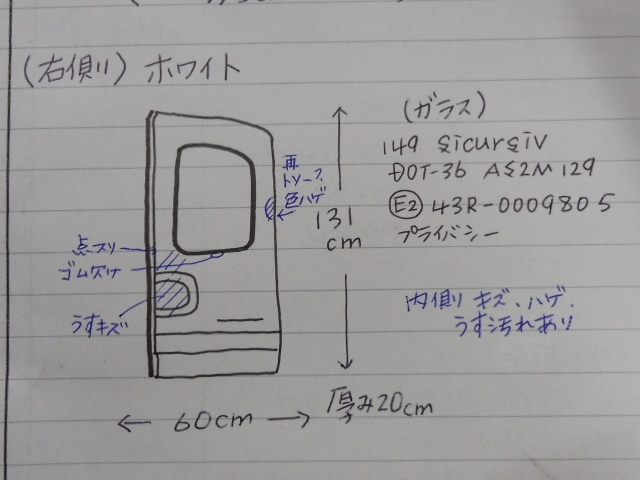 (右側) ホワイト
(ガラス)
149 Sicursiv
DOT-36 AS2M129
E2 43R-0009805
プライバシー
再
トソーフ
色ハゲ
131
cm
点スリ
ゴム欠け
うすキズ
内側 キズ、ハゲ、
うす汚れあり
60cm
厚み20cm